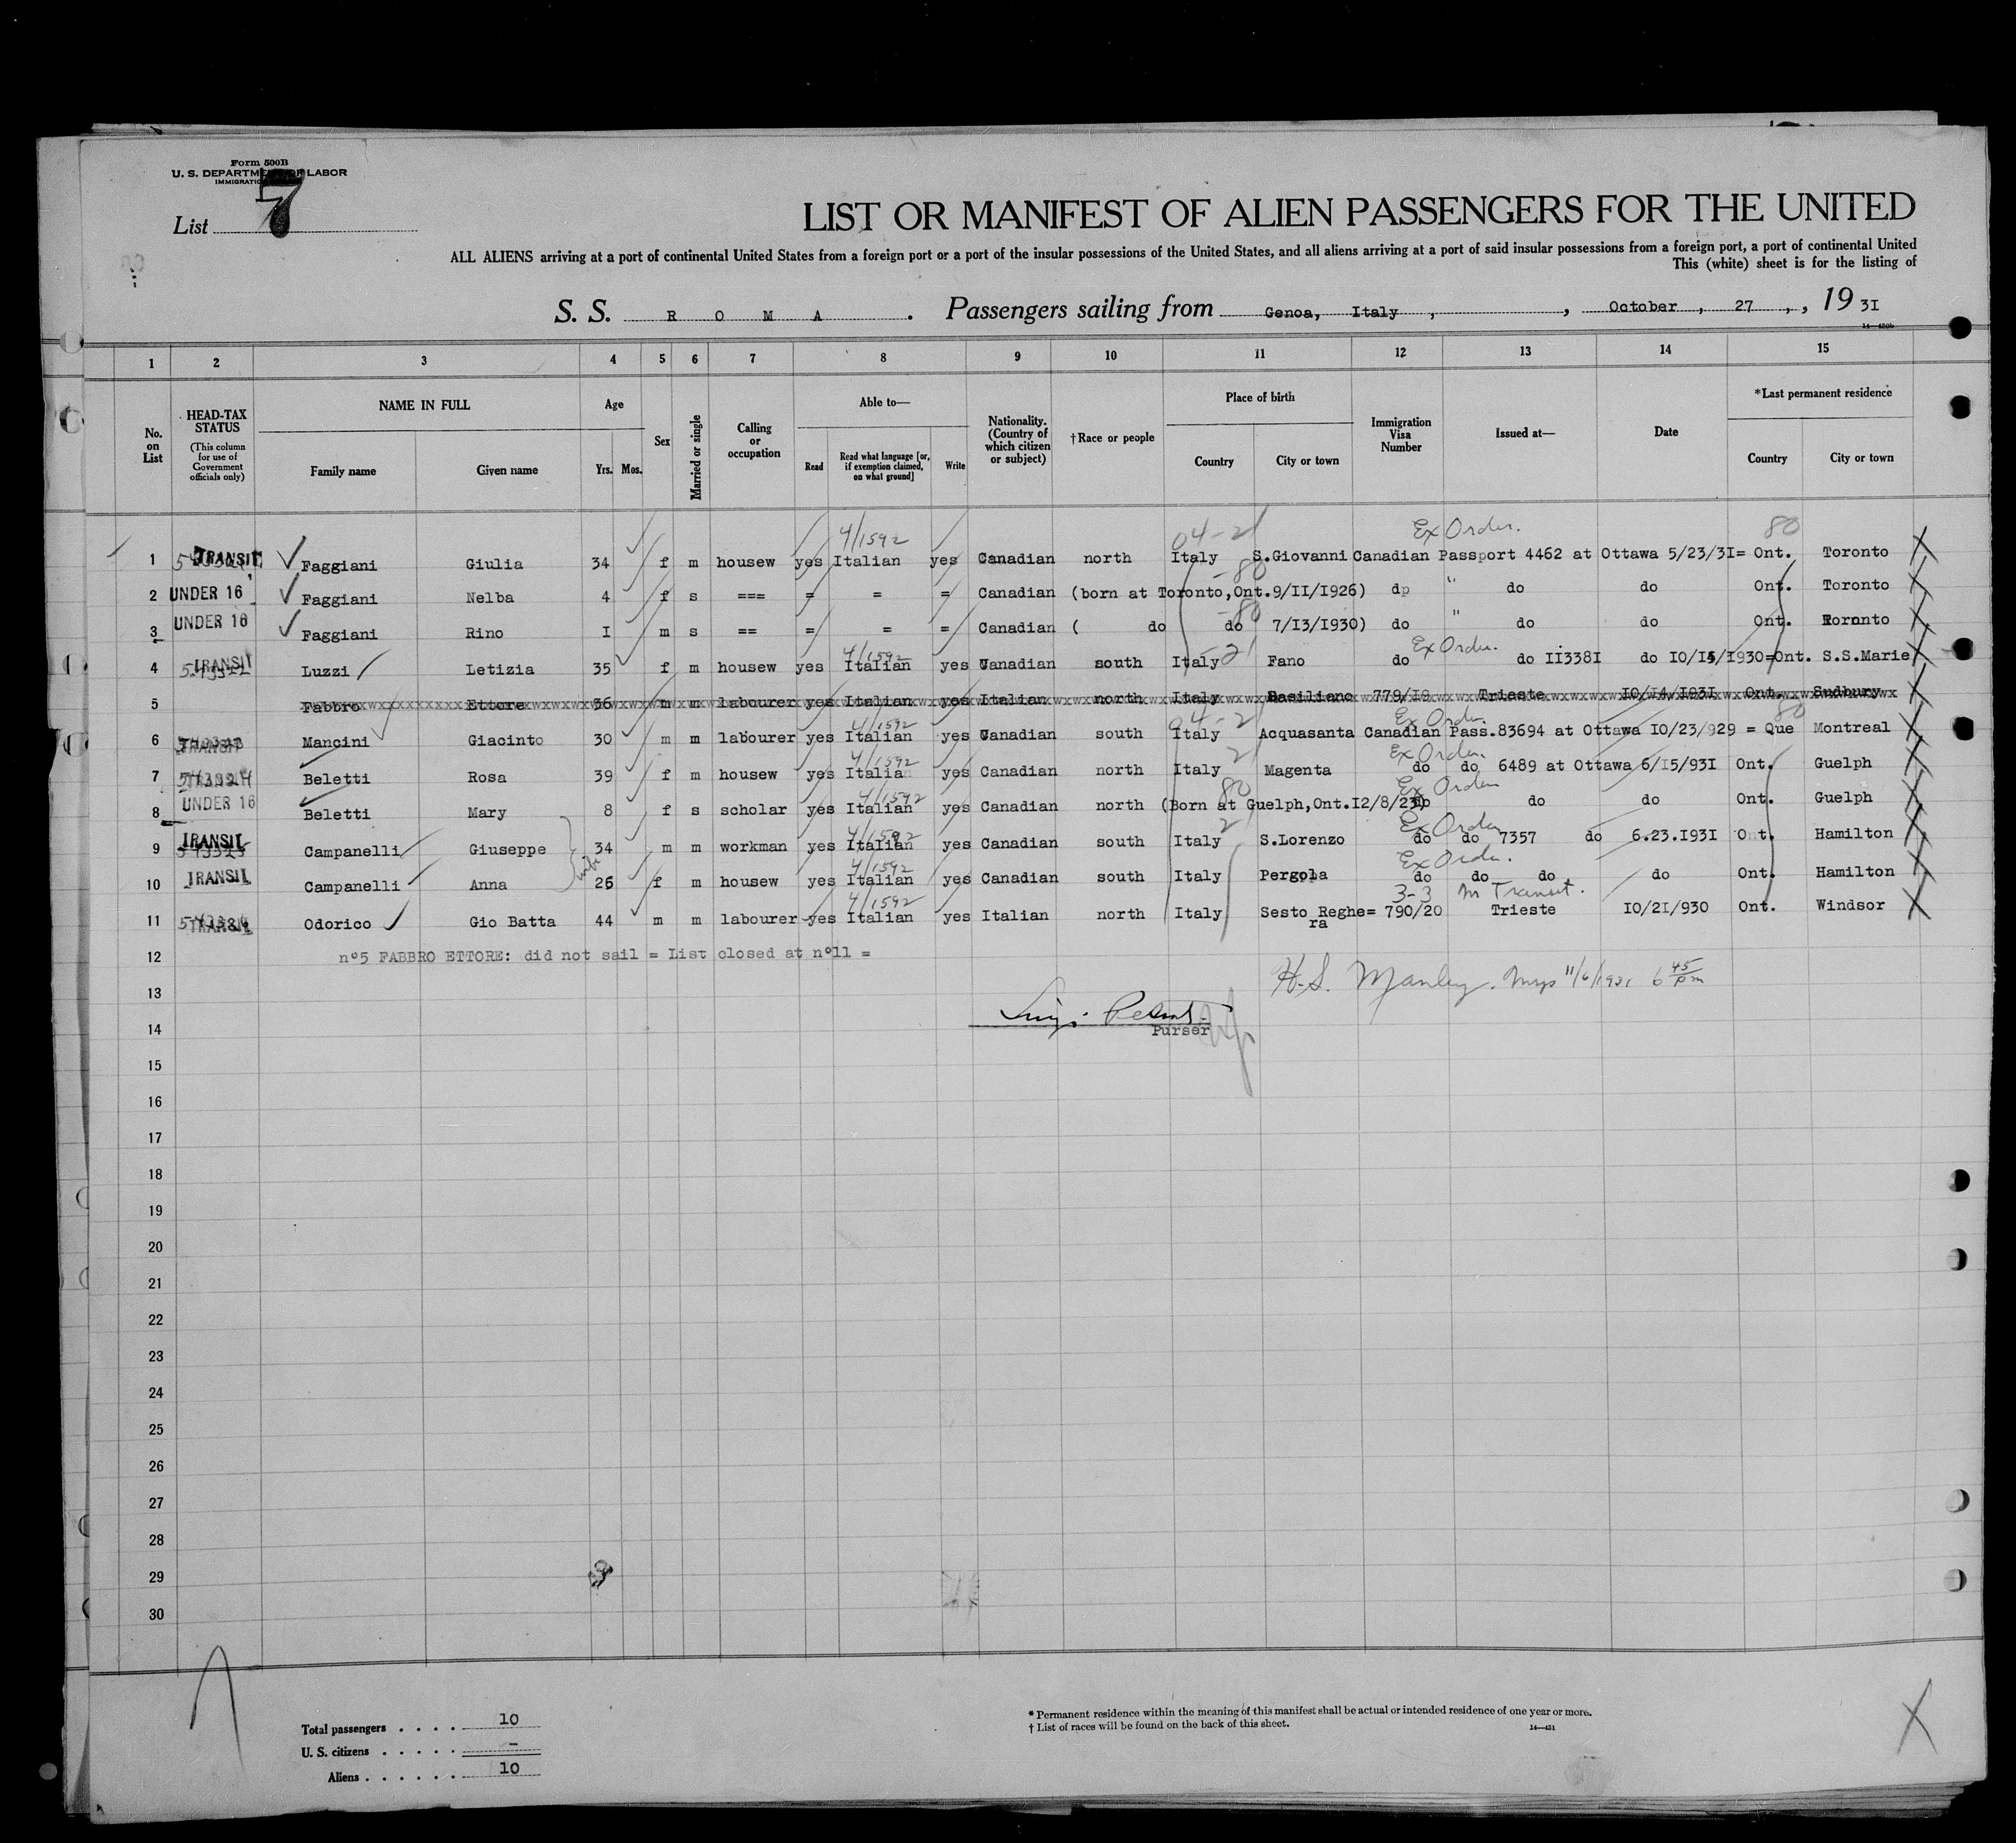 Form 500B
U. S. DEPARTMENT OF LABOR
IMMIGRATION
List 7
LIST OR MANIFEST OF ALIEN PASSENGERS FOR THE UNITED
ALL ALIENS arriving at a port of continental United States from a foreign port or a port of the insular possessions of the United States, and all aliens arriving at a port of said insular possessions from a foreign port, a port of continental United
This (white) sheet is for the listing of
S. S. R O M A . Passengers sailing from Genoa, Italy , , October , 27 , , 19 31
1 2 3 4 5 6 7 8 9 10 11 12 13 14 15
No. on List
HEAD-TAX STATUS (This column for use of Government officials only)
NAME IN FULL Family name Given name
Age Yrs. Mos.
Sex
Married or single
Calling or occupation
Able to— Read Read what language [or, if exemption claimed, on what ground] Write
Nationality. (Country of which citizen or subject)
†Race or people
Place of birth Country City or town
Immigration Visa Number
Issued at—
Date
*Last permanent residence Country City or town
4/1592 04-2 Ex Order. 80
1 TRANSIT Faggiani Giulia 34 f m housew yes Italian yes Canadian north Italy S.Giovanni Canadian Passport 4462 at Ottawa 5/23/3I= Ont. Toronto X
-80
2 UNDER 16 Faggiani Nelba 4 f s === = = = Canadian (born at Toronto,Ont.9/II/I926) dp " do do Ont. Toronto X
-80
3 UNDER 16 Faggiani Rino I m s == = = = Canadian ( do do 7/I3/I930) do " do do Ont. Toronto X
4/1592 -2 Ex Order.
4 TRANSIT Luzzi Letizia 35 f m housew yes Italian yes Canadian south Italy Fano do do II338I do I0/I5/I930=Ont. S.S.Marie X
5 Fabbro Ettore 36 m m labourer yes Italian yes Italian north Italy Basiliano 779/I9 Trieste I0/I4/I93I Ont. Sudbury X
4/1592 04-2 Ex Order 80
6 TRANSIT Mancini Giacinto 30 m m labourer yes Italian yes Canadian south Italy Acquasanta Canadian Pass.83694 at Ottawa I0/23/929 = Que Montreal X
4/1592 2 Ex Order.
7 Beletti Rosa 39 f m housew yes Italian yes Canadian north Italy Magenta do do 6489 at Ottawa 6/I5/93I Ont. Guelph X
4/1592 80 Ex Order
8 UNDER 16 Beletti Mary 8 f s scholar yes Italian yes Canadian north (Born at Guelph,Ont.I2/8/23) do do do Ont. Guelph X
4/1592 2 Ex Order
9 TRANSIT Campanelli Giuseppe 34 m m workman yes Italian yes Canadian south Italy S.Lorenzo do do 7357 do 6.23.I93I Ont. Hamilton X
wife 4/1592 Ex Order.
10 TRANSIT Campanelli Anna 26 f m housew yes Italian yes Canadian south Italy Pergola do do do do Ont. Hamilton X
4/1592 3-3 In Transit.
11 TRANSIT Odorico Gio Batta 44 m m labourer yes Italian yes Italian north Italy Sesto Reghe= 790/20 Trieste I0/2I/930 Ont. Windsor X
ra
12 n°5 FABBRO ETTORE: did not sail = List closed at n°11 =
13 H.S. Manley. 11/6/1931 6 45 pm
14 Purser
15
16
17
18
19
20
21
22
23
24
25
26
27
28
29
30
Total passengers . . . . 10
U. S. citizens . . . . . -
Aliens . . . . . . 10
* Permanent residence within the meaning of this manifest shall be actual or intended residence of one year or more.
† List of races will be found on the back of this sheet. 14—431